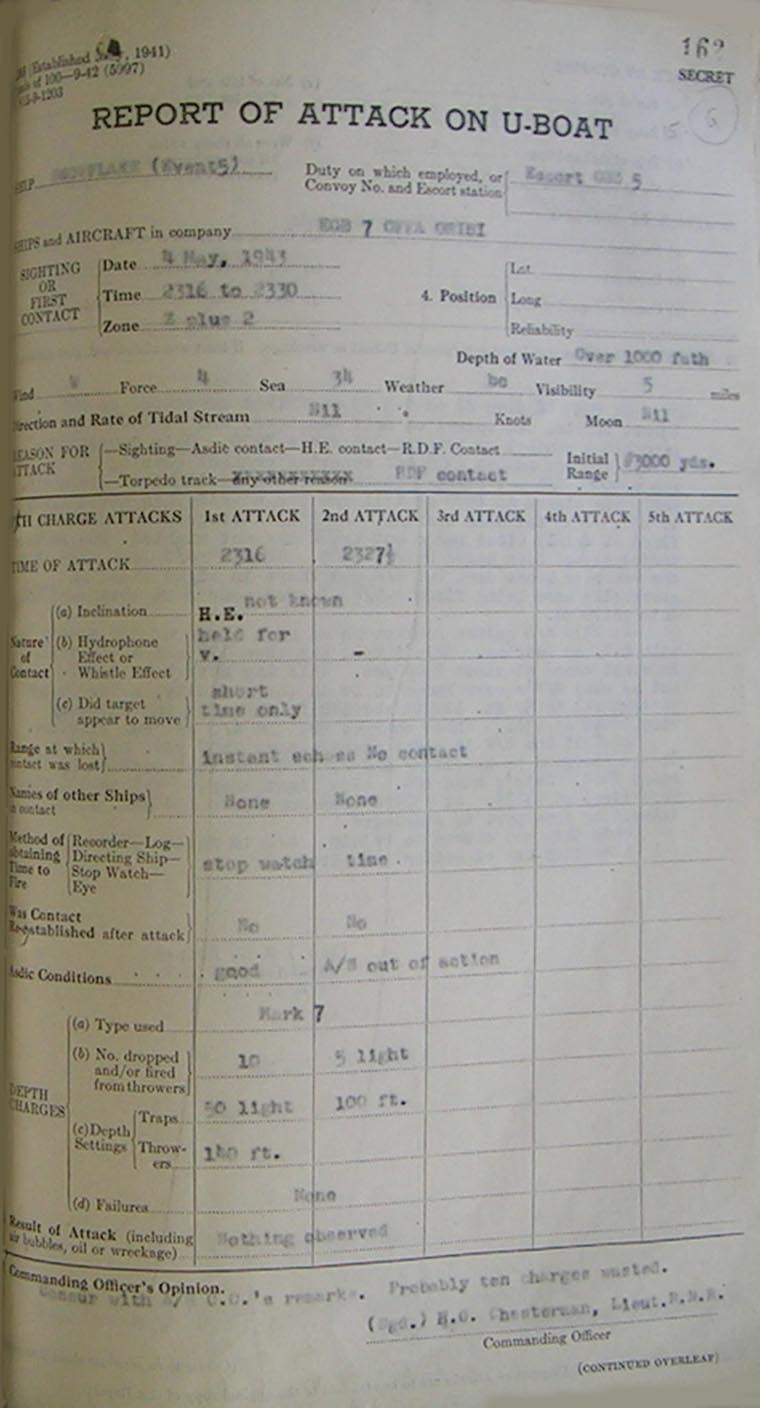 (Established 1941)
of 100—9-42 (5097)
162
SECRET
REPORT OF ATTACK ON U-BOAT
6
SNOWFLAKE (Event5)
Duty on which employed, or
Convoy No. and Escort station
Escort ONS 5
SHIPS and AIRCRAFT in company EGB 7 OFFA ORIBI
SIGHTING OR FIRST CONTACT
Date 4 May, 1943
Time 2316 to 2330
Zone Z plus 2
4. Position
Lat.
Long
Reliability
Depth of Water Over 1000 fath
Wind Force 4 Sea 34 Weather bc Visibility 5 miles
Direction and Rate of Tidal Stream Nil Knots Moon Nil
REASON FOR ATTACK
—Sighting—Asdic contact—H.E. contact—R.D.F. Contact
—Torpedo track—any other reason RDF contact
Initial Range 3000 yds.
DEPTH CHARGE ATTACKS 1st ATTACK 2nd ATTACK 3rd ATTACK 4th ATTACK 5th ATTACK
TIME OF ATTACK 2316 2327½
Nature of Contact
(a) Inclination not known
(b) Hydrophone Effect or Whistle Effect H.E. held for v. –
(c) Did target appear to move short time only
Range at which contact was lost instant echoes No contact
Names of other Ships in contact None None
Method of obtaining Time to Fire
Recorder—Log—
Directing Ship—
Stop Watch—
Eye
stop watch time
Was Contact Re-established after attack No No
Asdic Conditions good A/S out of action
DEPTH CHARGES
(a) Type used Mark 7
(b) No. dropped and/or fired from throwers 10 5 light
(c) Depth Settings
Traps 50 light 100 ft.
Throwers 140 ft.
(d) Failures None
Result of Attack (including air bubbles, oil or wreckage) Nothing observed
Commanding Officer's Opinion.
Concur with A/S C.O.'s remarks. Probably ten charges wasted.
(Sgd.) H.G. Chesterman, Lieut.R.N.R.
Commanding Officer
(CONTINUED OVERLEAF)